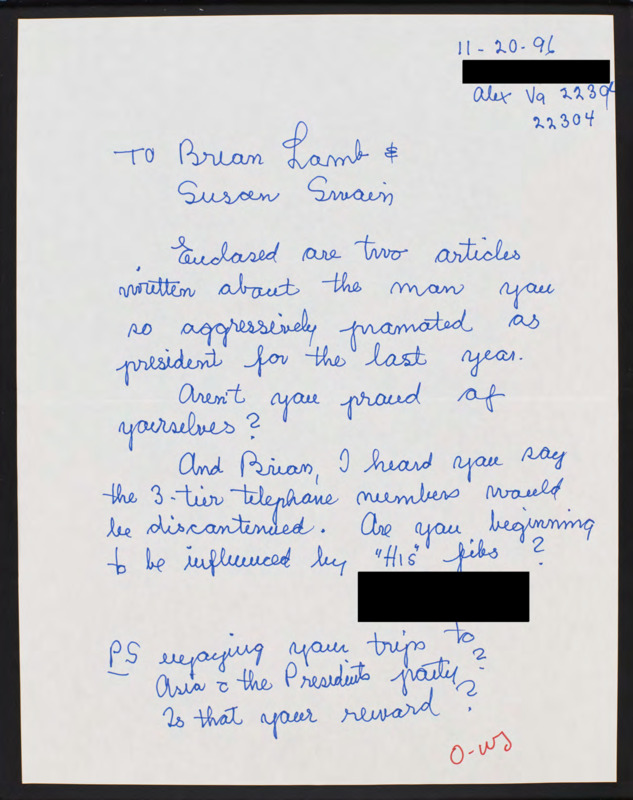 11-20-96
Alex Va 22304
22304
To Brian Lamb &
Susan Swain
Enclosed are two articles
written about the man you
so aggressively promoted as
president for the last year.
Aren't you proud of
yourselves?
And Brian, I heard you say
the 3-tier telephone numbers would
be discontinued. Are you beginning
to be influenced by "His" fibs ?
PS enjoying your trips to
Asia c̄ the Presidents party?
Is that your reward?
O-WJ